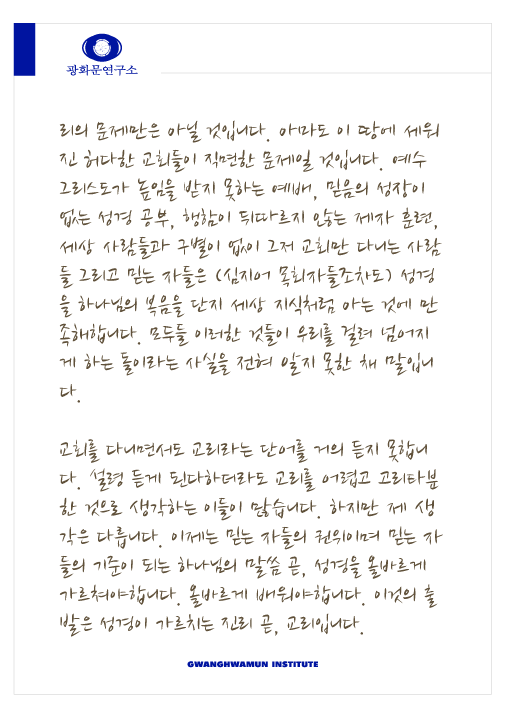 광화문연구소
리의 문제만은 아닐 것입니다. 아마도 이 땅에 세워
진 허다한 교회들이 직면한 문제일 것입니다. 예수
그리스도가 높임을 받지 못하는 예배, 믿음의 성장이
없는 성경 공부, 행함이 뒤따르지 않는 제자 훈련,
세상 사람들과 구별이 없이 그저 교회만 다니는 사람
들 그리고 믿는 자들은 (심지어 목회자들조차도) 성경
을 하나님의 복음을 단지 세상 지식처럼 아는 것에 만
족해합니다. 모두들 이러한 것들이 우리를 걸려 넘어지
게 하는 돌이라는 사실을 전혀 알지 못한 채 말입니
다.
교회를 다니면서도 교리라는 단어를 거의 듣지 못합니
다. 설령 듣게 된다하더라도 교리를 어렵고 고리타분
한 것으로 생각하는 이들이 많습니다. 하지만 제 생
각은 다릅니다. 이제는 믿는 자들의 권위이며 믿는 자
들의 기준이 되는 하나님의 말씀 곧, 성경을 올바르게
가르쳐야합니다. 올바르게 배워야합니다. 이것의 출
발은 성경이 가르치는 진리 곧, 교리입니다.
GWANGHWAMUN INSTITUTE